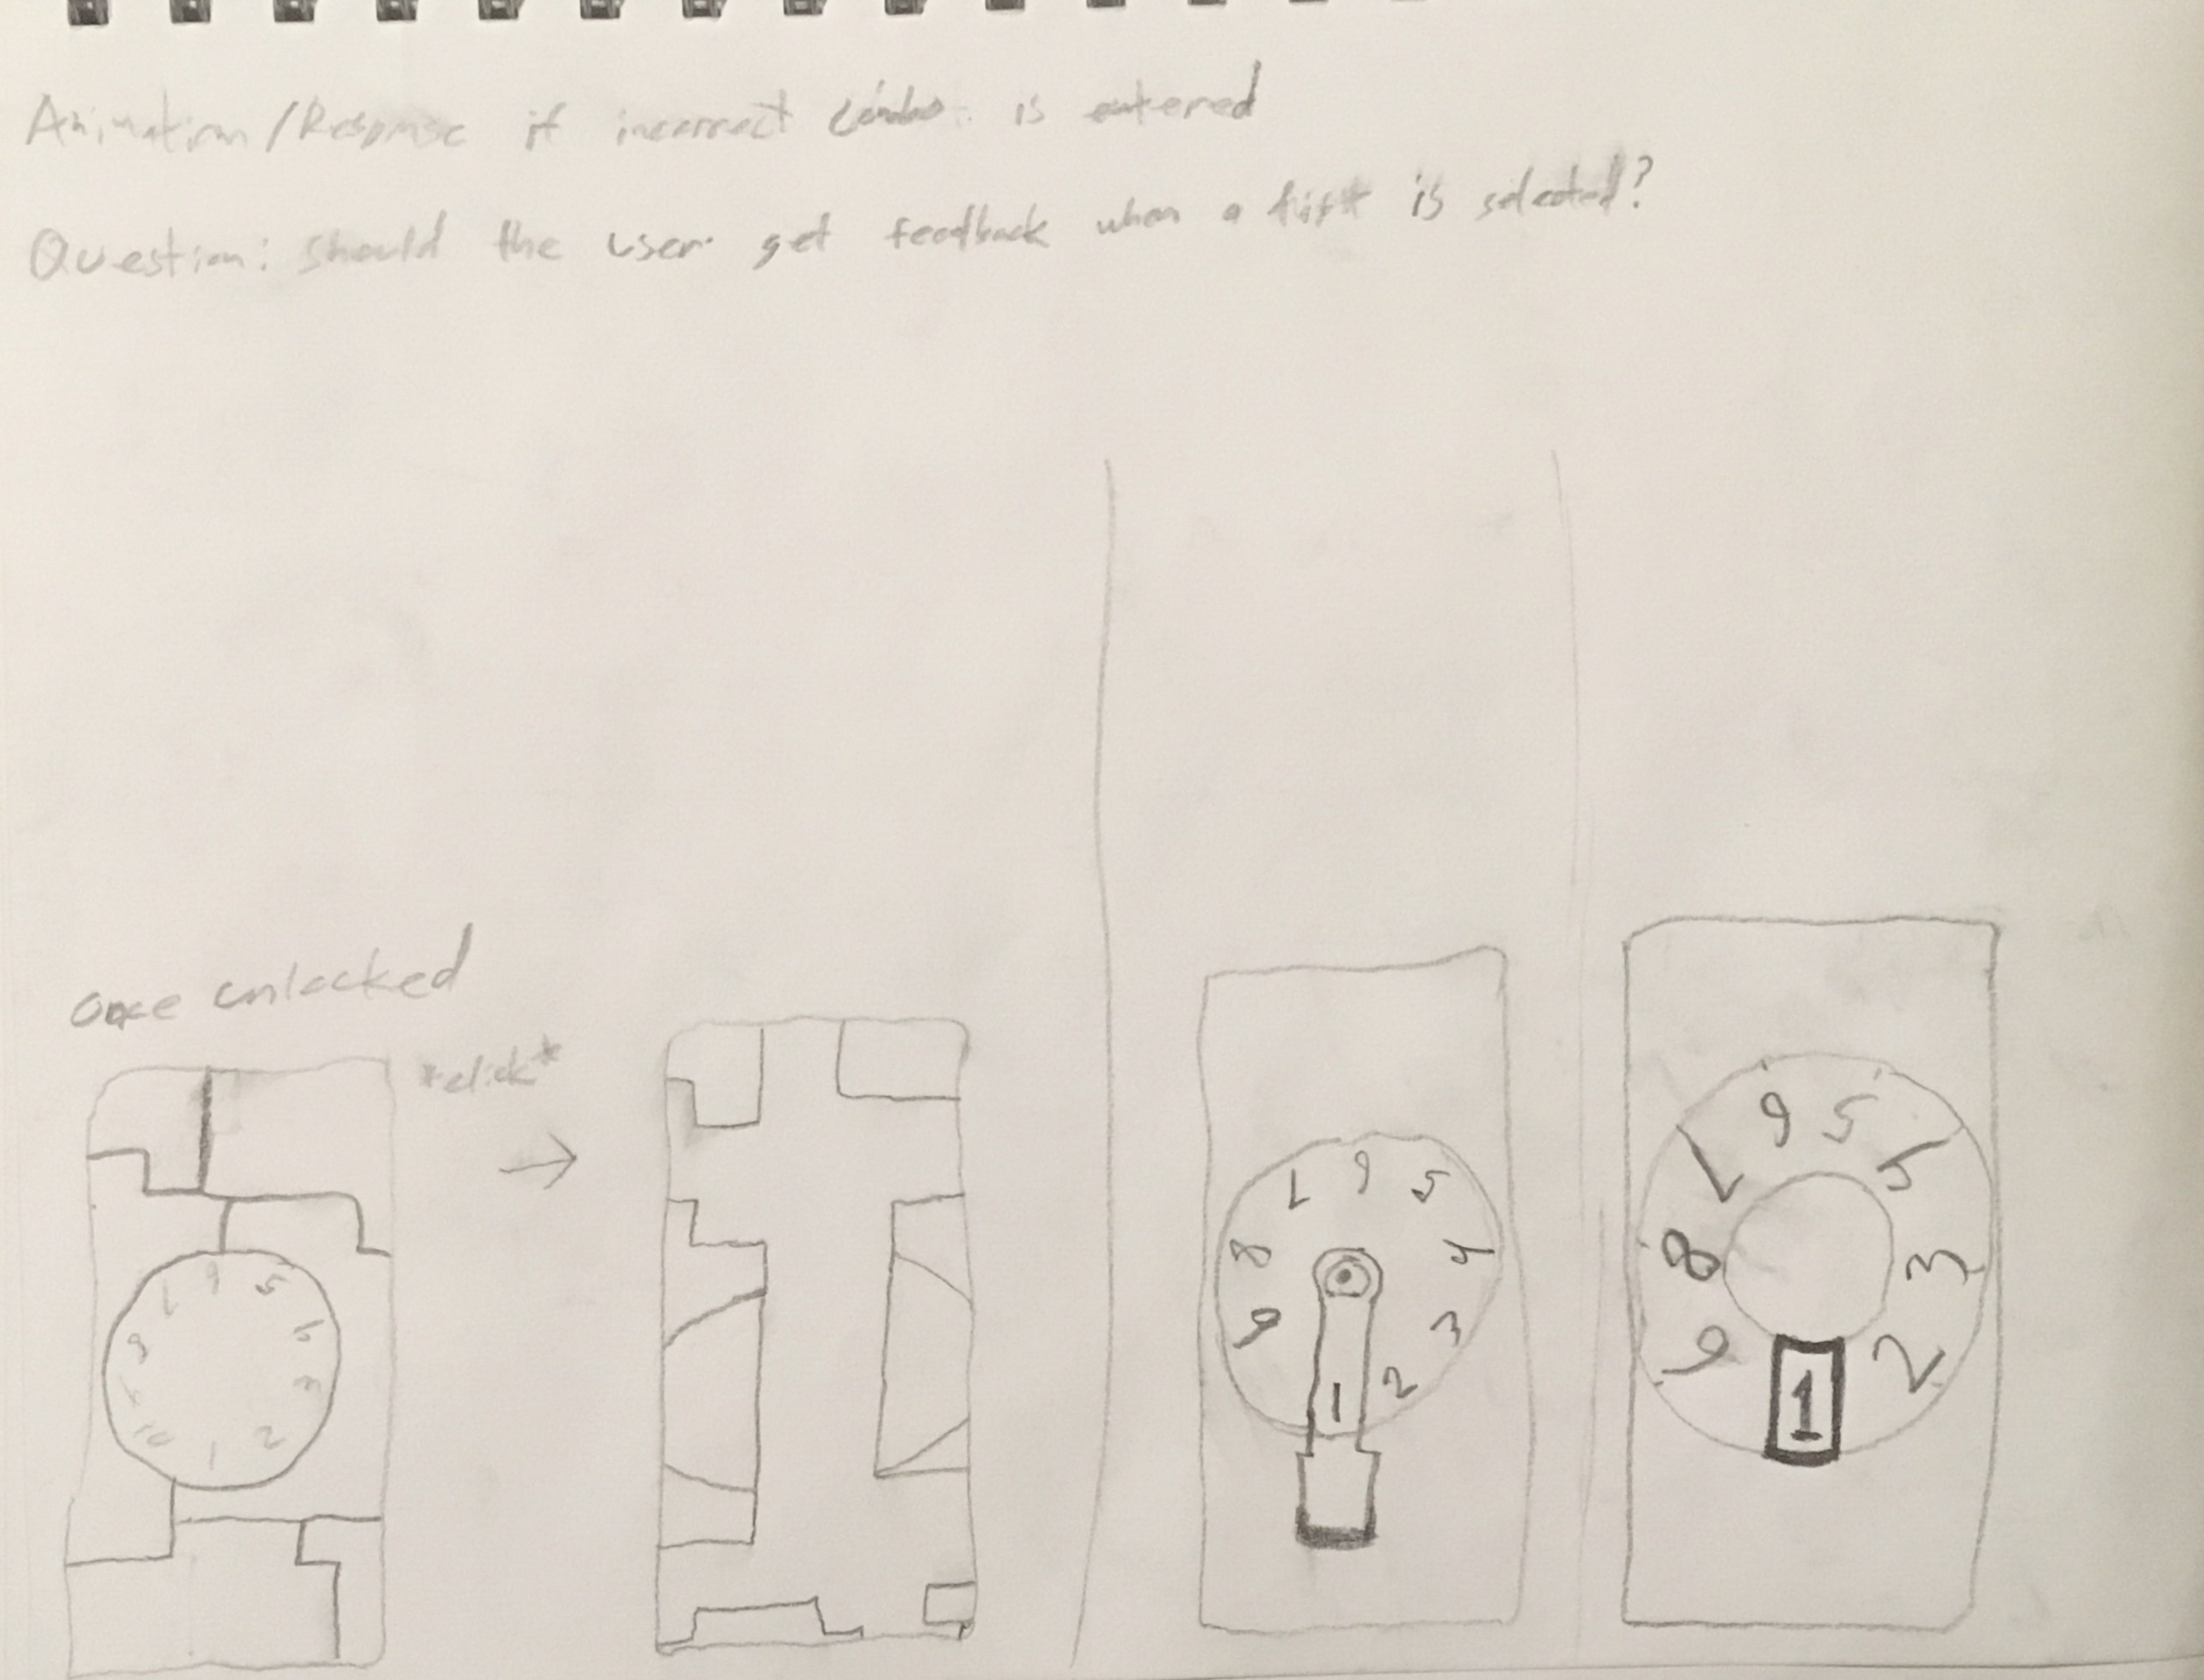 Animation/Response if incorrect combo. is entered
Question: should the user get feedback when a is selected?
once unlocked
*click*
1 9 5
8 4
9 3
1 2
9 5
8 3
2
1